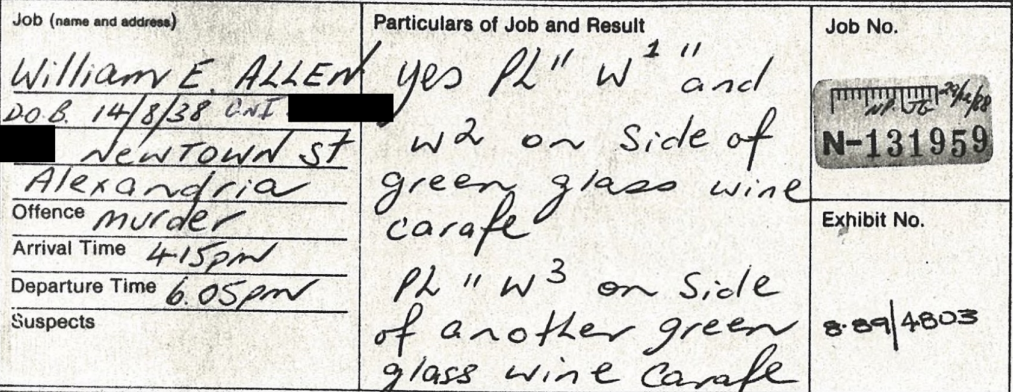 Job (name and address)
William E. ALLEN
D.O.B. 14/8/38 CNI
Newtown St
Alexandria
Offence murder
Arrival Time 4.15pm
Departure Time 6.05pm
Suspects
Particulars of Job and Result
yes PL" W1" and
W2 on side of
green glass wine
carafe
PL " W3 on side
of another green
glass wine carafe
Job No.
N-131959
Exhibit No.
8.89/4803